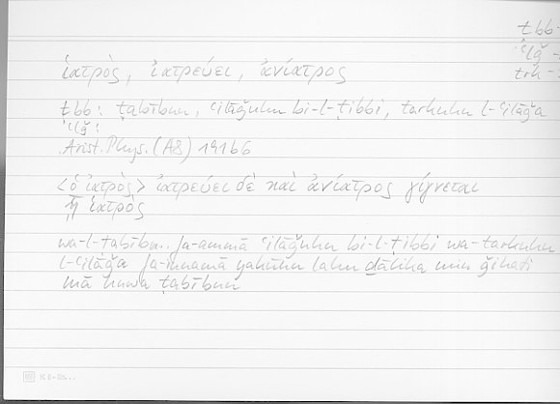 ṭbb-
ʿlǧ-
trk-
ἰατρὸς, ἰατρεύει, ἀνίατρος
ṭbb: ṭabībun, ʿilāǧuhu bi-l-ṭibbi, tarkuhu l-ʿilāǧa
ʿlǧ:
Arist. Phys. (A8) 191b6
<ὁ ἰατρὸς> ἰατρεύει δὲ καὶ ἀνίατρος γίγνεται
ᾗ ἰατρός
wa-l-ṭabību fa-ammā ʿilāǧuhu bi-l-ṭibbi wa-tarkuhu
l-ʿilāǧa fa-innamā yakūnu lahu ḏālika min ǧihati
mā huwa ṭabībun